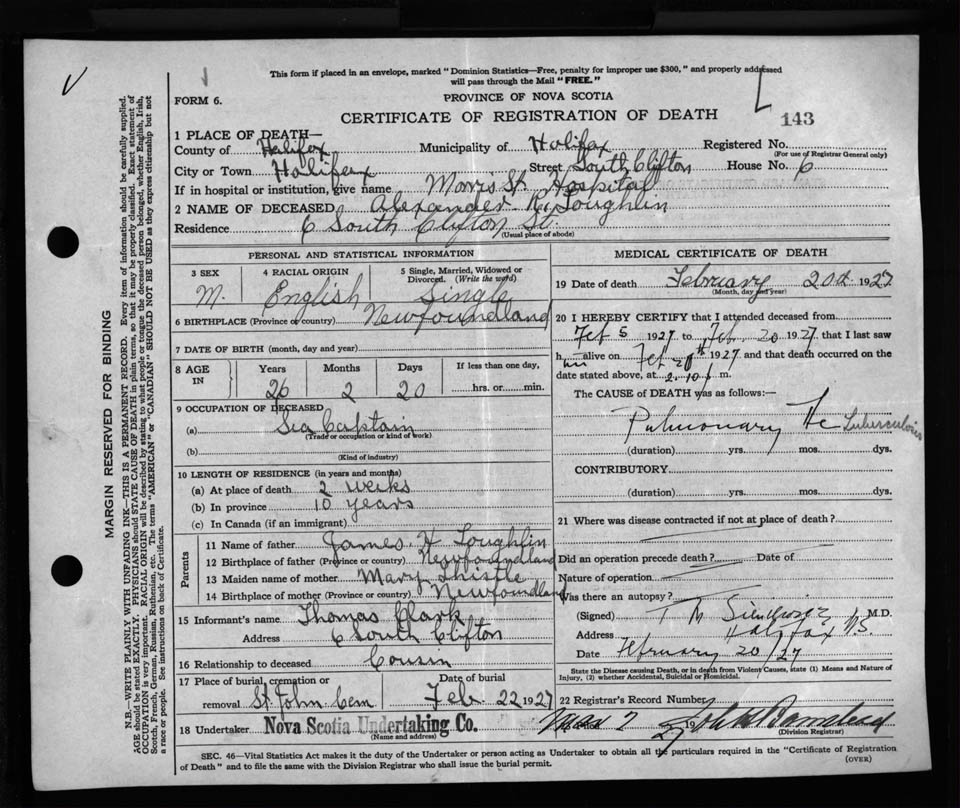 This form if placed in an envelope, marked "Dominion Statistics—Free, penalty for improper use $300," and properly addressed
will pass through the Mail "FREE."
FORM 6.
PROVINCE OF NOVA SCOTIA
CERTIFICATE OF REGISTRATION OF DEATH
143
1 PLACE OF DEATH—
County of Halifax Municipality of Halifax Registered No.
(For use of Registrar General only)
City or Town Halifax Street South Clifton House No. 6
If in hospital or institution, give name Morris St. Hospital
2 NAME OF DECEASED Alexander Loughlin
Residence 6 South Clifton St.
(Usual place of abode)
PERSONAL AND STATISTICAL INFORMATION
3 SEX 4 RACIAL ORIGIN 5 Single, Married, Widowed or Divorced. (Write the word)
M. English Single
6 BIRTHPLACE (Province or country) Newfoundland
7 DATE OF BIRTH (month, day and year)
8 AGE IN Years Months Days If less than one day,
26 2 20 hrs. or min.
9 OCCUPATION OF DECEASED
(a) Sea Captain
(Trade or occupation or kind of work)
(b)
(Kind of industry)
10 LENGTH OF RESIDENCE (in years and months)
(a) At place of death 2 weeks
(b) In province 10 years
(c) In Canada (if an immigrant)
Parents
11 Name of father James H Loughlin
12 Birthplace of father (Province or country) Newfoundland
13 Maiden name of mother Mary Thistle
14 Birthplace of mother (Province or country) Newfoundland
15 Informant's name Thomas Clark
Address 6 South Clifton
16 Relationship to deceased Cousin
17 Place of burial, cremation or removal St. John Cem Date of burial Feb 22 1927
18 Undertaker Nova Scotia Undertaking Co.
(Name and address)
MEDICAL CERTIFICATE OF DEATH
19 Date of death February 20th 1927
(Month, day and year)
20 I HEREBY CERTIFY that I attended deceased from
Feb 5 1927 to Feb. 20 1927 that I last saw
him alive on Feb 20th 1927 and that death occurred on
date stated above, at 2.10 m.
The CAUSE of DEATH was as follows:—
Pulmonary Tuberculosis
(duration) yrs. mos. dys.
CONTRIBUTORY
(duration) yrs. mos. dys.
21 Where was disease contracted if not at place of death?
Did an operation precede death? Date of
Nature of operation
Was there an autopsy?
(Signed) M.D.
Address Halifax N.S.
Date February 20/27
State the Disease causing Death, or in death from Violent Causes, state (1) Means and Nature of
Injury, (2) whether Accidental, Suicidal or Homicidal.
22 Registrar's Record Number
19
(Division Registrar)
SEC. 46—Vital Statistics Act makes it the duty of the Undertaker or person acting as Undertaker to obtain all the particulars required in the "Certificate of Registration
of Death" and to file the same with the Division Registrar who shall issue the burial permit.
(OVER)
MARGIN RESERVED FOR BINDING
N.B.—WRITE PLAINLY WITH UNFADING INK—THIS IS A PERMANENT RECORD. Every item of information should be carefully supplied.
AGE should be stated EXACTLY. PHYSICIANS should STATE CAUSE OF DEATH in plain terms, so that it may be properly classified. Exact statement of
OCCUPATION is very important. RACIAL ORIGIN will be described by stating to what people or tongue the deceased person belonged, whether English, Irish,
Scotch, French, German, Russian, Ruthenian, etc. The terms "AMERICAN" or "CANADIAN" SHOULD NOT BE USED as they express citizenship but not
a race or people. See instructions on back of Certificate.